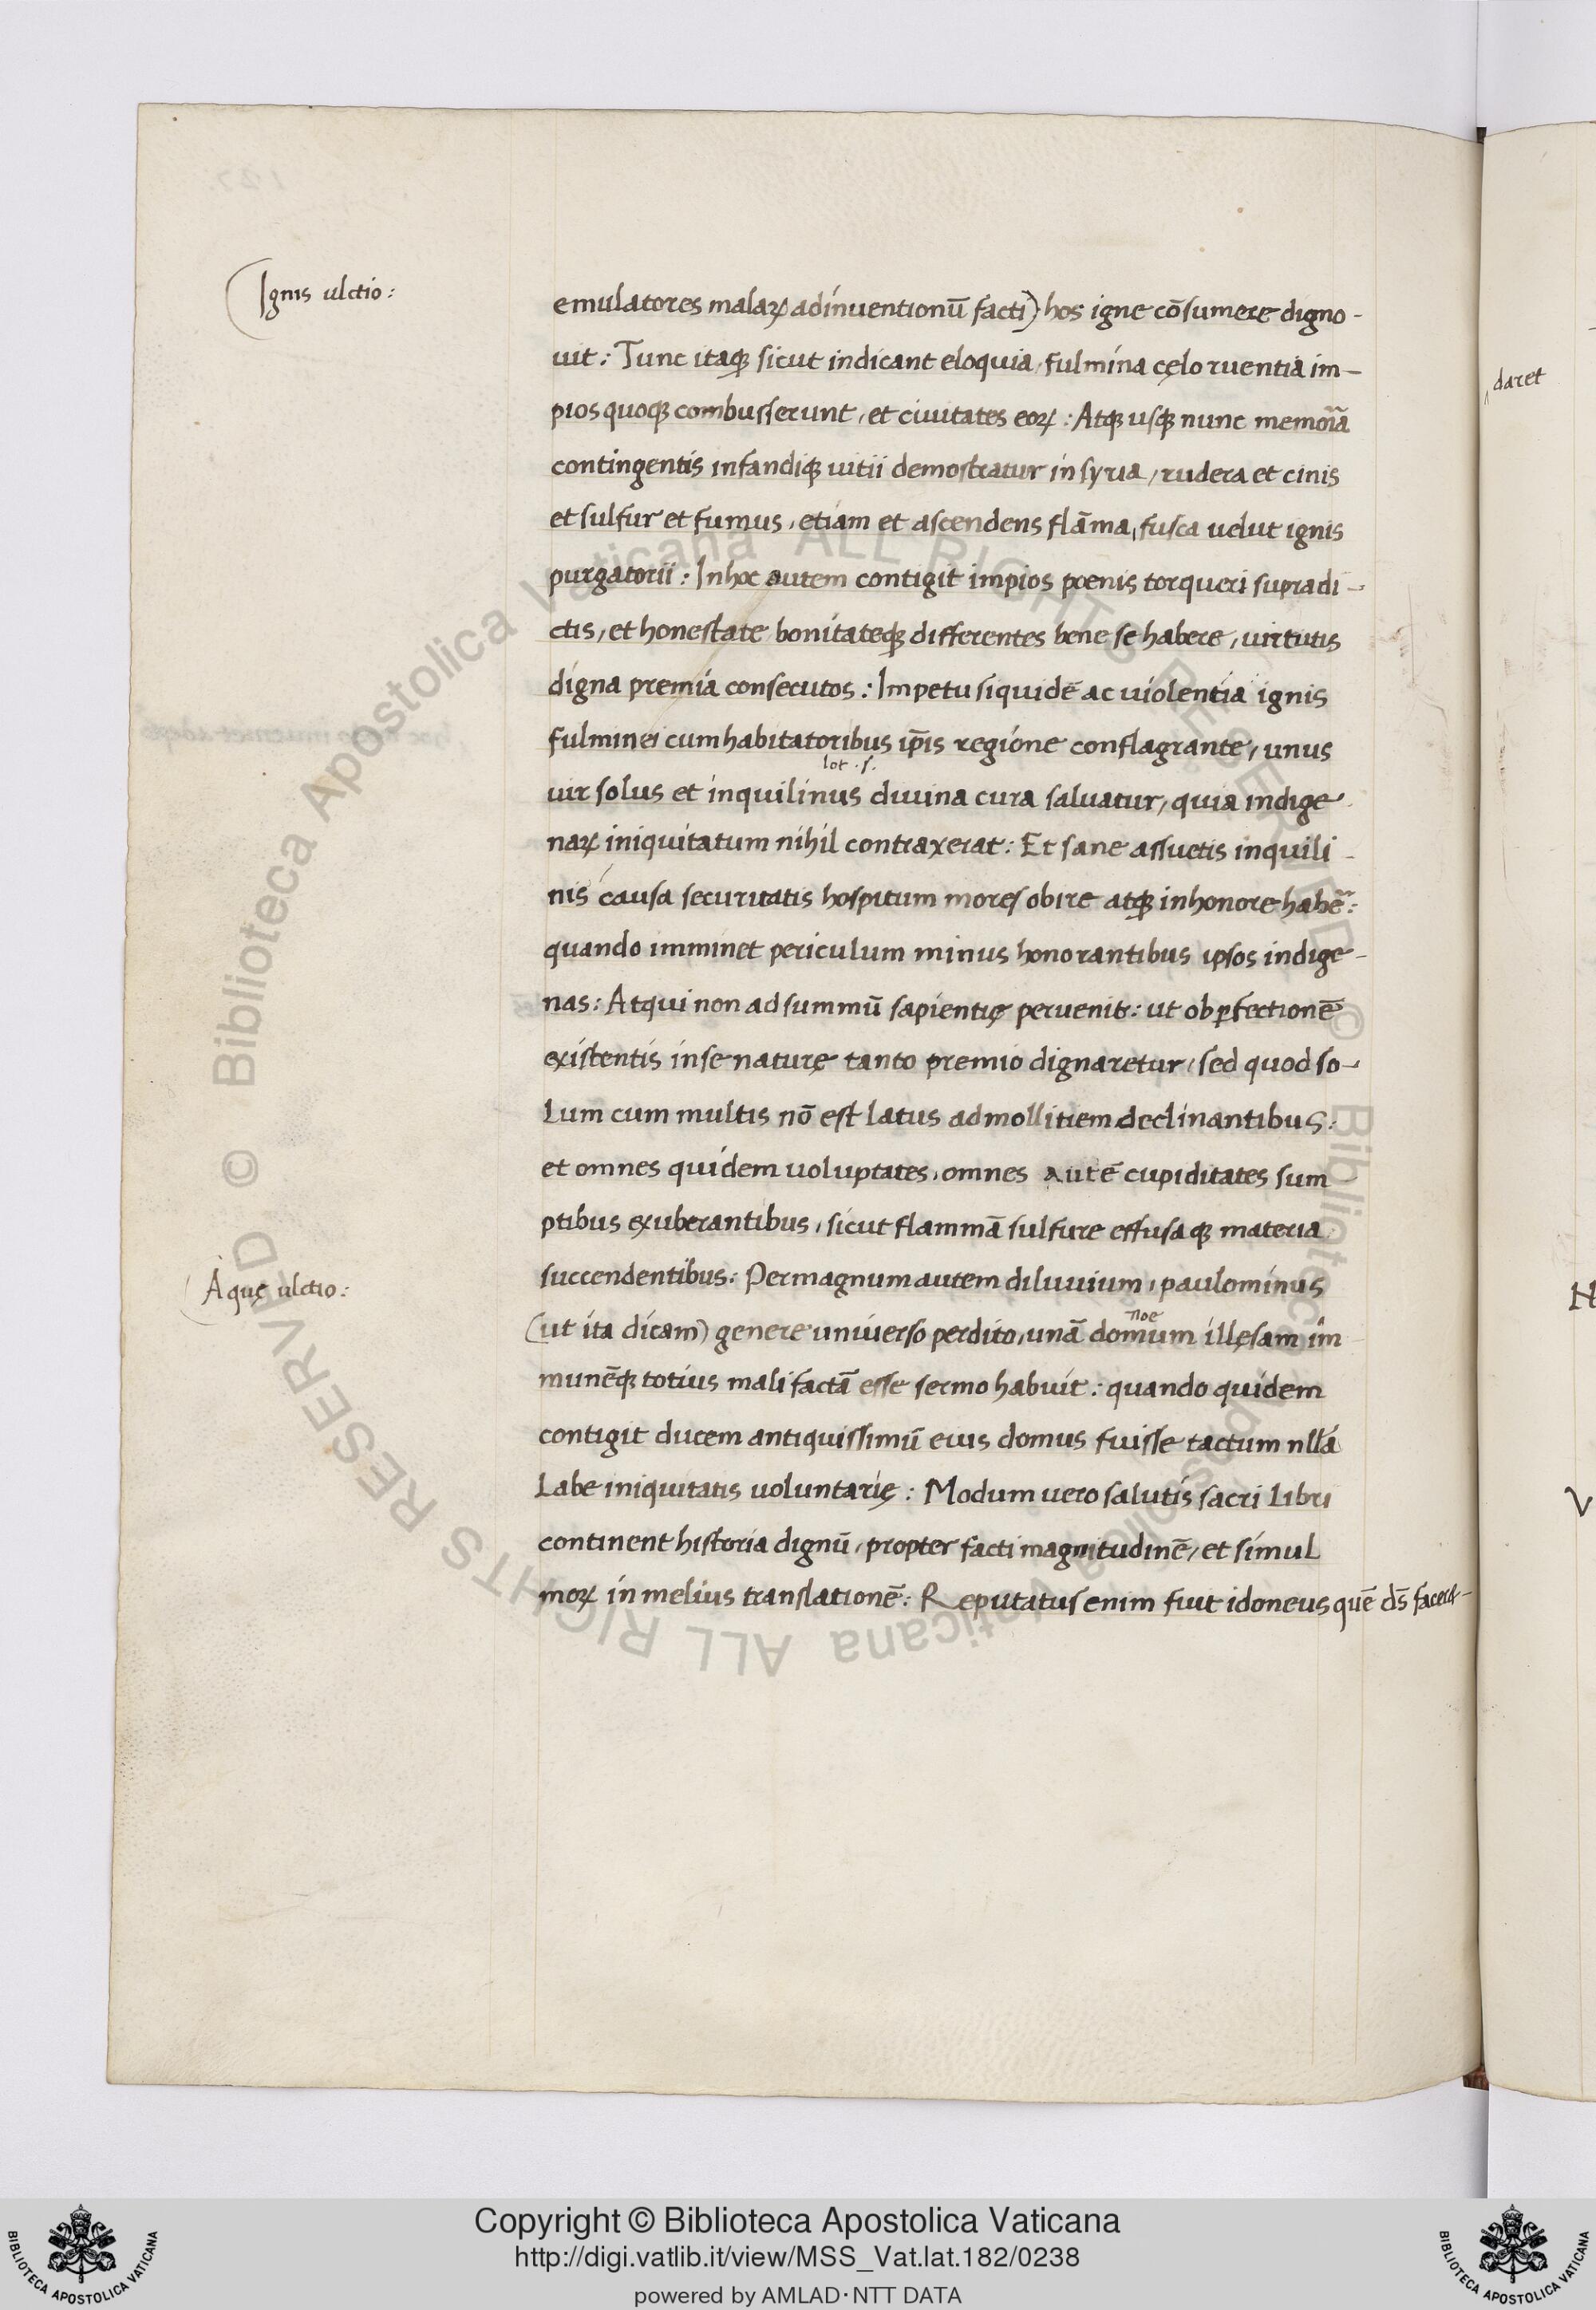 Ignis ulctio:
emulatores malaꝝ adinuentionū facti) hos igne cōsumere digno-
uit: Tunc itaqꝫ sicut indicant eloquia, fulmina cęlo ruentia im-
pios quoqꝫ combusserunt, et ciuitates eoꝝ: Atqꝫ usqꝫ nunc memoriā
contingentis infandiqꝫ uitii demostratur in syria, rudera et cinis
et sulfur et fumus, etiam et ascendens flāma, fusca uelut ignis
purgatorii: In hoc autem contigit impios poenis torqueri supradi-
ctis, et honestate bonitateqꝫ differentes bene se habere, uirtutis
digna premia consecutos: Impetu siquidē ac uiolentia ignis
fulminei cum habitatoribus ip̄is regione conflagrante, unus
lot .s.
uir solus et inquilinus diuina cura saluatur, quia indige
naꝝ iniquitatum nihil contraxerat: Et sane assuetis inquili-
nis causa securitatis hospitum mores obire atqꝫ in honore habē:
quando imminet periculum minus honorantibus ipsos indige-
nas: Atqui non ad summū sapientię peruenit: ut ob ꝑfectionē
existentis in se naturę tanto premio dignaretur, sed quod so-
lum cum multis nō est latus ad mollitiem declinantibus:
et omnes quidem uoluptates, omnes autē cupiditates sum
ptibus exuberantibus, sicut flammā sulfure effusaqꝫ materia
Aquę ulctio:
succendentibus: Permagnum autem diluuium, paulominus
noe
(ut ita dicam) genere uniuerso perdito, unā domum illęsam im
munēqꝫ totius mali factā esse sermo habuit: quando quidem
contigit ducem antiquissimū eius domus fuisse tactum nlla
labe iniquitatis uoluntarię: Modum uero salutis sacri libri
continent historia dignū, propter facti magnitudinē, et simul
moꝝ in melius translationē: Reputatus enim fuit idoneus quē ds̄ faceret-
daret
H
V
Copyright © Biblioteca Apostolica Vaticana
http://digi.vatlib.it/view/MSS_Vat.lat.182/0238
powered by AMLAD·NTT DATA
BIBLIOTECA APOSTOLICA VATICANA
BIBLIOTECA APOSTOLICA VATICANA
© Biblioteca Apostolica Vaticana ALL RIGHTS RESERVED © Biblioteca Apostolica Vaticana ALL RIGHTS RESERVED